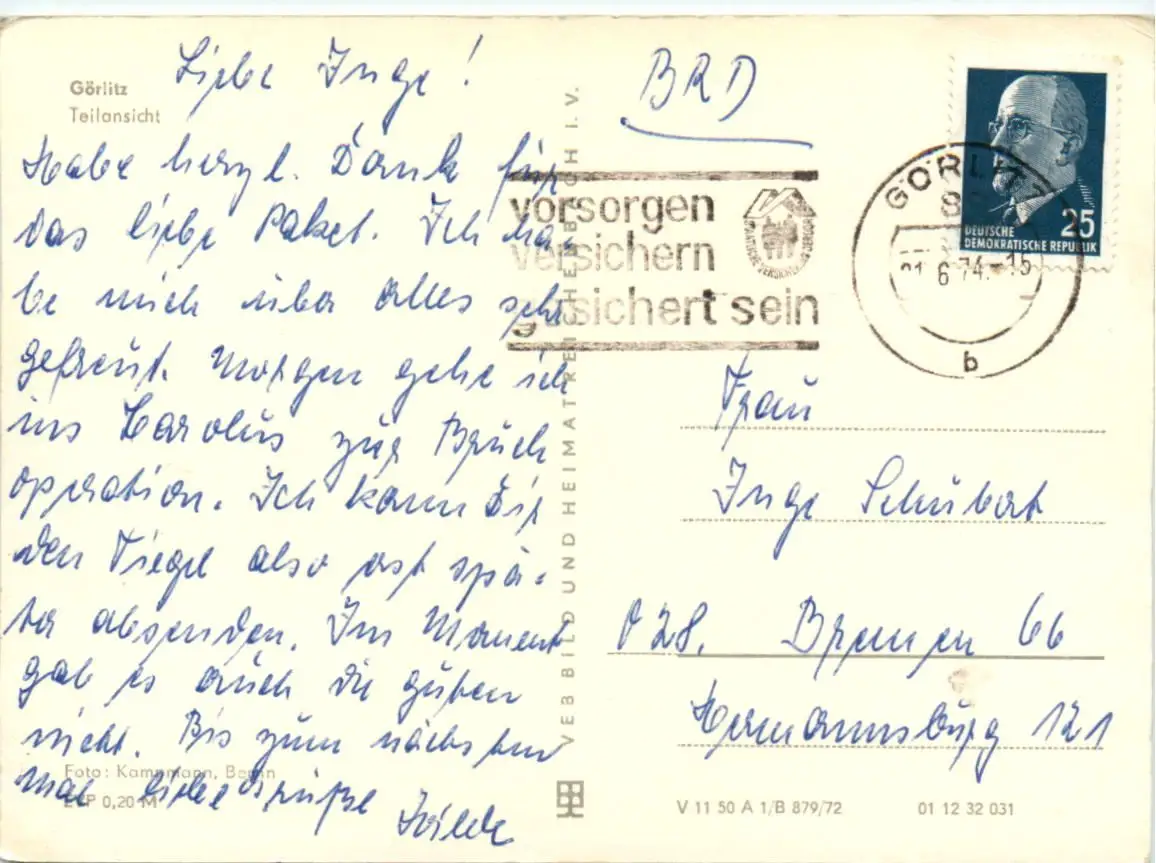 Görlitz
Teilansicht
Liebe Inge!
Habe herzl. Dank für
das liebe Paket. Ich ha-
be mich über alles sehr
gefreut. Morgen gehe ich
ins Carolus zur Bruch
operation. Ich kann Dir
den Tiegel also erst spä-
ter absenden. Im Moment
gab es auch die guten
nicht. Bis zum nächsten
Mal liebe Grüße
Foto: Kampmann, Berlin
EVP 0,20 M
VEB BILD UND HEIMAT REICHENBACH I. V.
BRD
vorsorgen
versichern
gesichert sein
GÖRLITZ
6 74.-15
b
25
DEUTSCHE
DEMOKRATISCHE REPUBLIK
Frau
Inge Schubert
28. Bremen 66
Hermannsburg 121
V 11 50 A 1/B 879/72
01 12 32 031